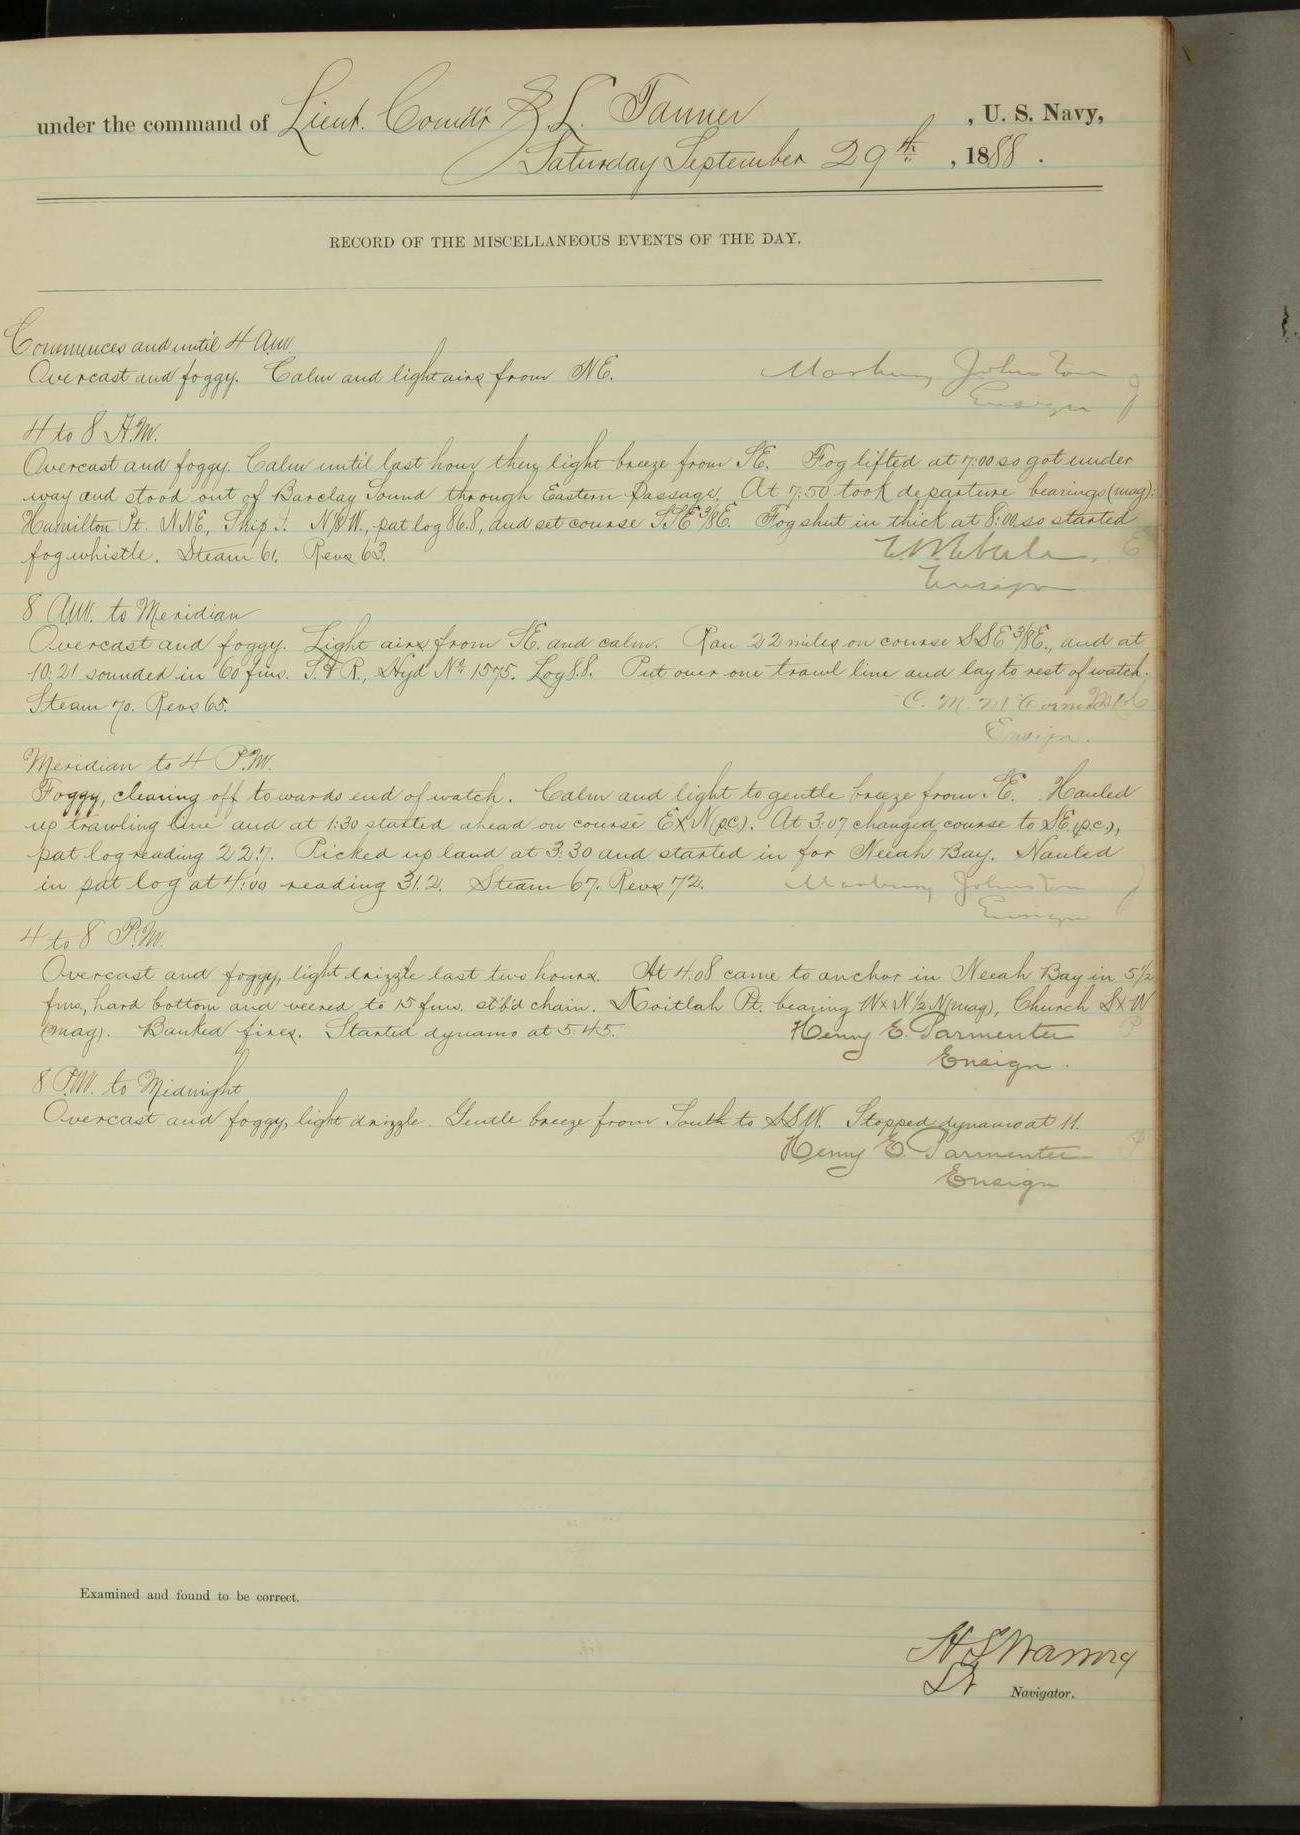 under the command of Lieut. Comd'r Z. L. Tanner , U. S. Navy,
Saturday September 29th , 1888 .
RECORD OF THE MISCELLANEOUS EVENTS OF THE DAY.
Commences and until 4 A.M.
Overcast and foggy. Calm and light airs from NE. Marbury Johnston
Ensign J
4 to 8 A.M.
Overcast and foggy. Calm until last hour then light breeze from SE. Fog lifted at 7:00 so got under
way and stood out of Barclay Sound through Eastern Passage. At 7:50 took departure bearings (mag):
Hamilton Pt. NNE, Ship I. N/8W., pat log 86.8, and set course SSE 3/8E. Fog shut in thick at 8:00 so started
fog whistle. Steam 61. Revs 63. E
Ensign
8 A.M. to Meridian
Overcast and foggy. Light airs from SE. and calm. Ran 22 miles on course SSE 3/8E., and at
10:21 sounded in 60 fms. S. & R., Hyd No. 1575. Log 8.8. Put over one trawl line and lay to rest of watch.
Steam 70. Revs 65. C. M. McCormick
Ensign.
Meridian to 4 P.M.
Foggy, clearing off towards end of watch. Calm and light to gentle breeze from SE. Hauled
up trawling line and at 1:30 started ahead on course ExN (p.c.). At 3:07 changed course to SE (p.c.),
pat log reading 22.7. Picked up land at 3:30 and started in for Neeah Bay. Hauled
in pat log at 4:00 reading 31.2. Steam 67. Revs 72. Marbury Johnston J
Ensign
4 to 8 P.M.
Overcast and foggy, light drizzle last two hours. At 4:08 came to anchor in Neeah Bay in 5 1/2
fms, hard bottom and veered to 15 fms. stb'd chain. Koitlah Pt. bearing WxN 1/2 N (mag), Church SxW
(mag). Banked fires. Started dynamo at 5:45. Henry E. Parmenter P
Ensign.
8 P.M. to Midnight
Overcast and foggy, light drizzle. Gentle breeze from South to SSW. Stopped dynamo at 11.
Henry E. Parmenter P
Ensign
Examined and found to be correct.
H S Waring
Lt Navigator.